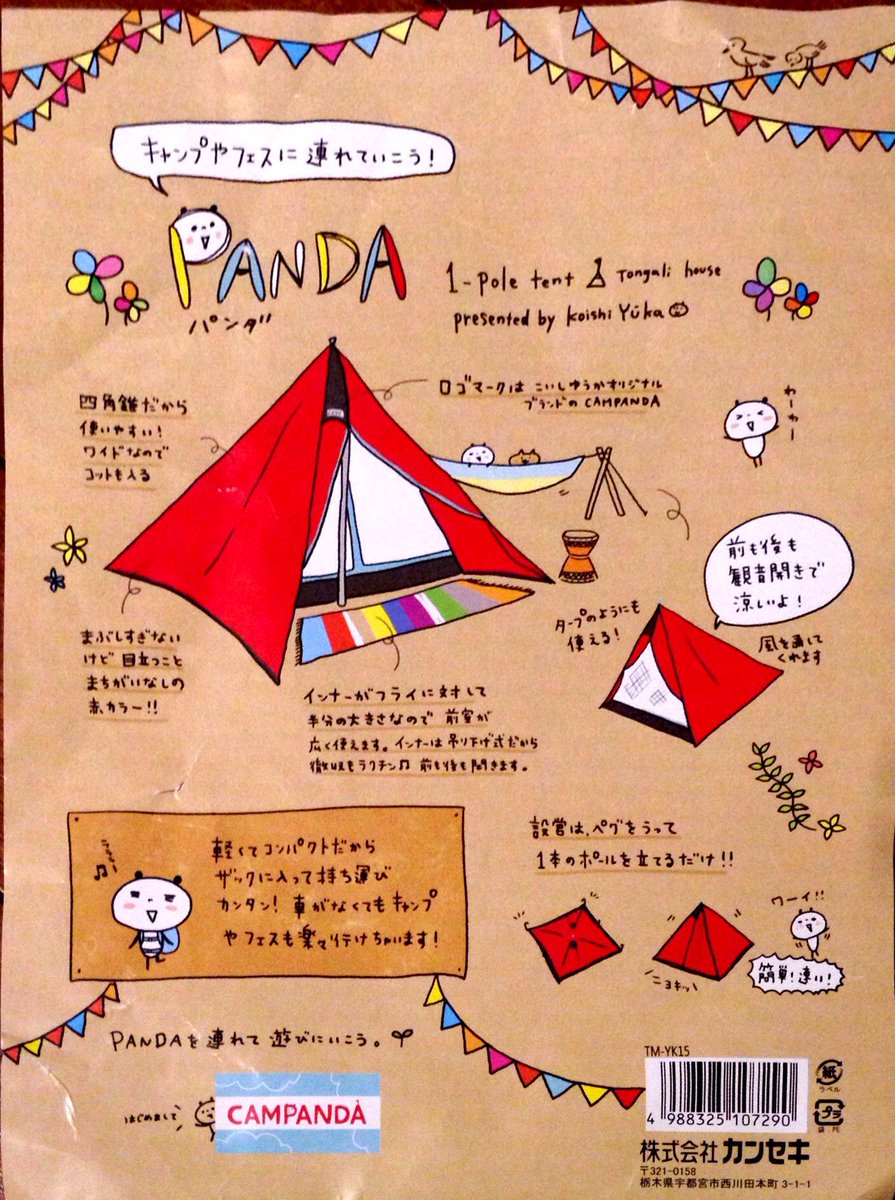 キャンプやフェスに連れていこう!
PANDA
パンダ
1-pole tent Tongali house
presented by Koishi Yūka
四角錐だから
使いやすい!
ワイドなので
コットも入る
ロゴマークは こいしゆうかオリジナル
ブランドの CAMPANDA
わーわー
前も後も
観音開きで
涼しいよ!
風を通して
くれます
タープのようにも
使える!
まぶしすぎない
けど 目立つこと
まちがいなしの
赤カラー!!
インナーがフライに対して
半分の大きさなので 前室が
広く使えます。インナーは吊り下げ式だから
撤収もラクチン♫ 前も後も開きます。
軽くてコンパクトだから
ザックに入って持ち運び
カンタン! 車がなくてもキャンプ
やフェスも楽々行けちゃいます!
設営は、ペグをうって
1本のポールを立てるだけ!!
ニョキッ
ワーイ!!
簡単!速い!
PANDAを連れて 遊びにいこう。
はじめまして
CAMPANDA
TM-YK15
4 988325 107290
紙
ラベル
プラ
袋、PE
株式会社 カンセキ
〒321-0158
栃木県宇都宮市西川田本町 3-1-1